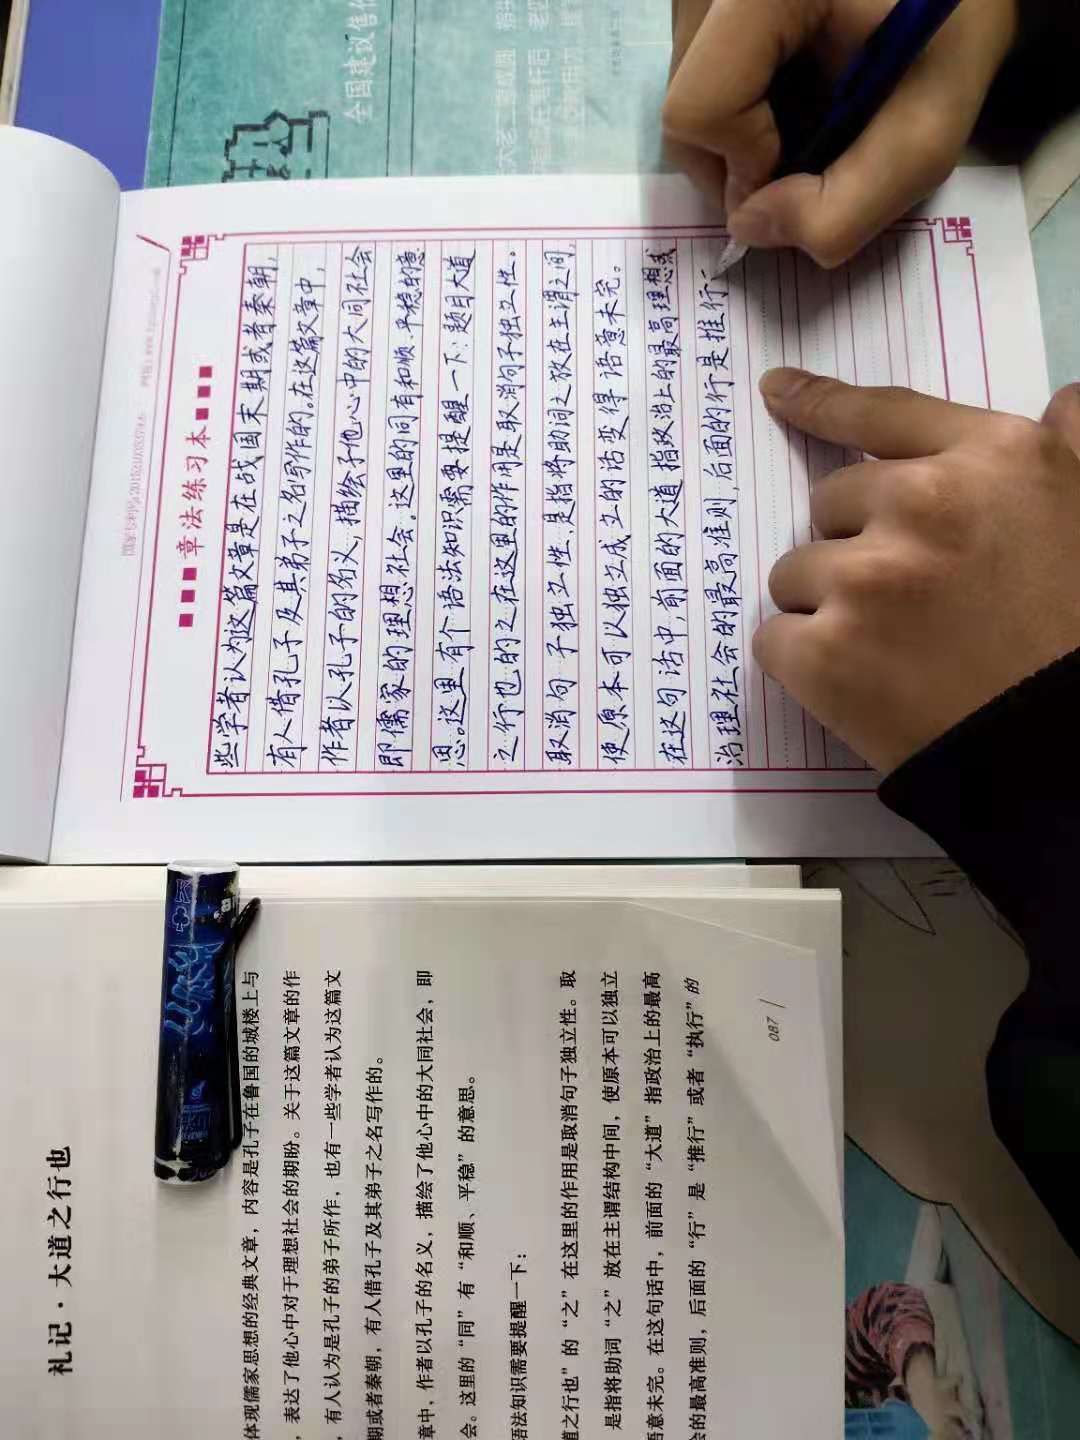 全国建议售价
章法练习本
些学者认为这篇文章是在战国末期或者秦朝,
有人借孔子及其弟子之名写作的。在这篇文章中,
作者认孔子的名义,描绘了他心中的大同社会
即儒家的理想社会。这里的同有和顺、平稳的意
思。这里有个语法知识需要提醒一下:题目大道
之行也的之在这里的作用是取消句子独立性。
取消句子独立性、是指将助词之放在主谓之间,
使原本可以独立成立的话变得语意未完。
在这句话中,前面的大道指政治上的最高理想或
治理社会的最高准则,后面的行是推行
礼记·大道之行也
体现儒家思想的经典文章,内容是孔子在鲁国的城楼上与
,表达了他心中对于理想社会的期盼。关于这篇文章的作
,有人认为是孔子的弟子所作,也有一些学者认为这篇文
期或者秦朝,有人借孔子及其弟子之名写作的。
章中,作者以孔子的名义,描绘了他心中的大同社会,即
会。这里的“同”有“和顺、平稳”的意思。
语法知识需要提醒一下:
道之行也”的“之”在这里的作用是取消句子独立性。取
,是指将助词“之”放在主谓结构中间,使原本可以独立
语意未完。在这句话中,前面的“大道”指政治上的最高
会的最高准则,后面的“行”是“推行”或者“执行”的
087